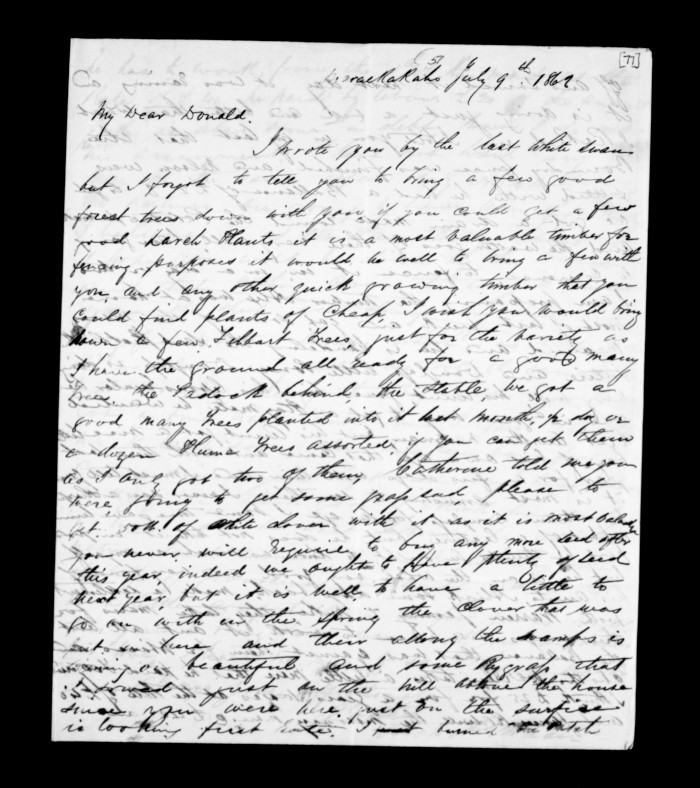 (57 [71]
July 9th. 1862
My Dear Donald.
I wrote you by the last White Swan
but I forgot to tell you to bring a few good
forest trees down with you if you could get a few
good Larch Plants it is a most Valuable timber for
fencing purposes it would be well to bring a few with
you and any other quick growing timber that you
could find plants of Cheap, I wish you would bring
down a few Filbert Trees just for the Variety as
I have the ground all ready for a good many
trees the Padock behind the stable, we got a
good many Trees planted into it last month, dox or
a dozen Plume Trees assorted if you can get them
as I only got two of them, Catherine told me you
were going to get some grass seed please to
get of white Clover with it as it is most Valuable
you never will Require to buy any more seed after
this year, indeed we ought to Have plenty of seed
next year but it is well to have a little to
go on with in the Spring the Clover that was
put in here and their allong the swamps is
beautiful and some Rygrass that
I sowed just on the hill above the house
since you were here just on the surfice
is looking first rate. I burned the Patch